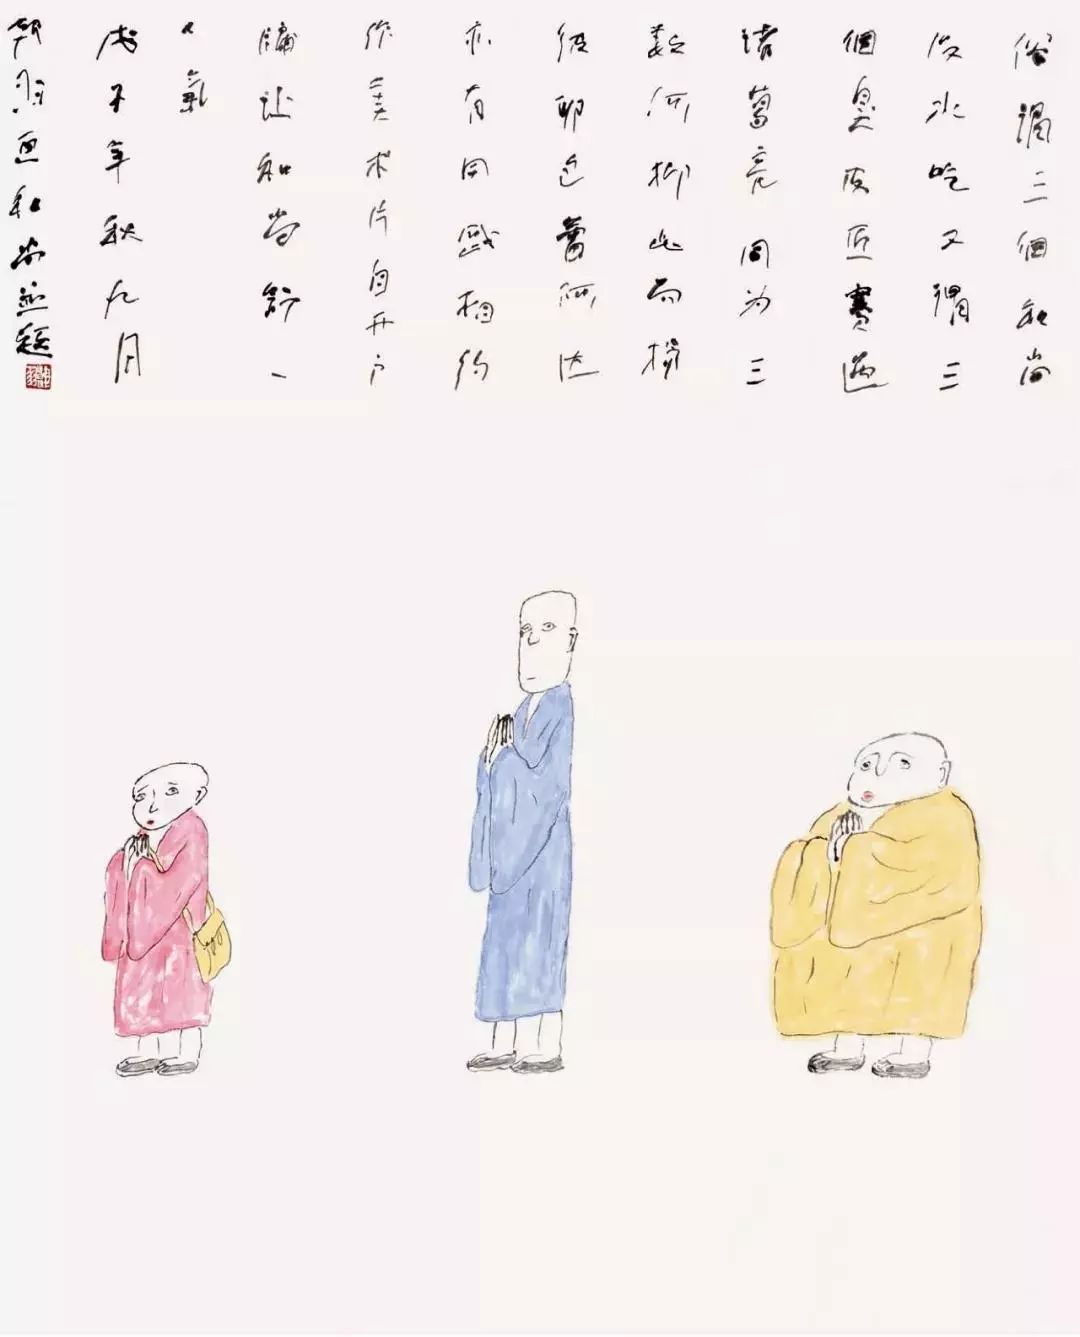 俗謂三個和尚
没水吃又謂三
個臭皮匠賽過
诸葛亮同为三
数何抑此而揚
彼耶包蕾何达
亦有同感相约
作美术片自开户
牖让和尚舒一
口氣
戊子年秋九月
韩羽画和尚並题